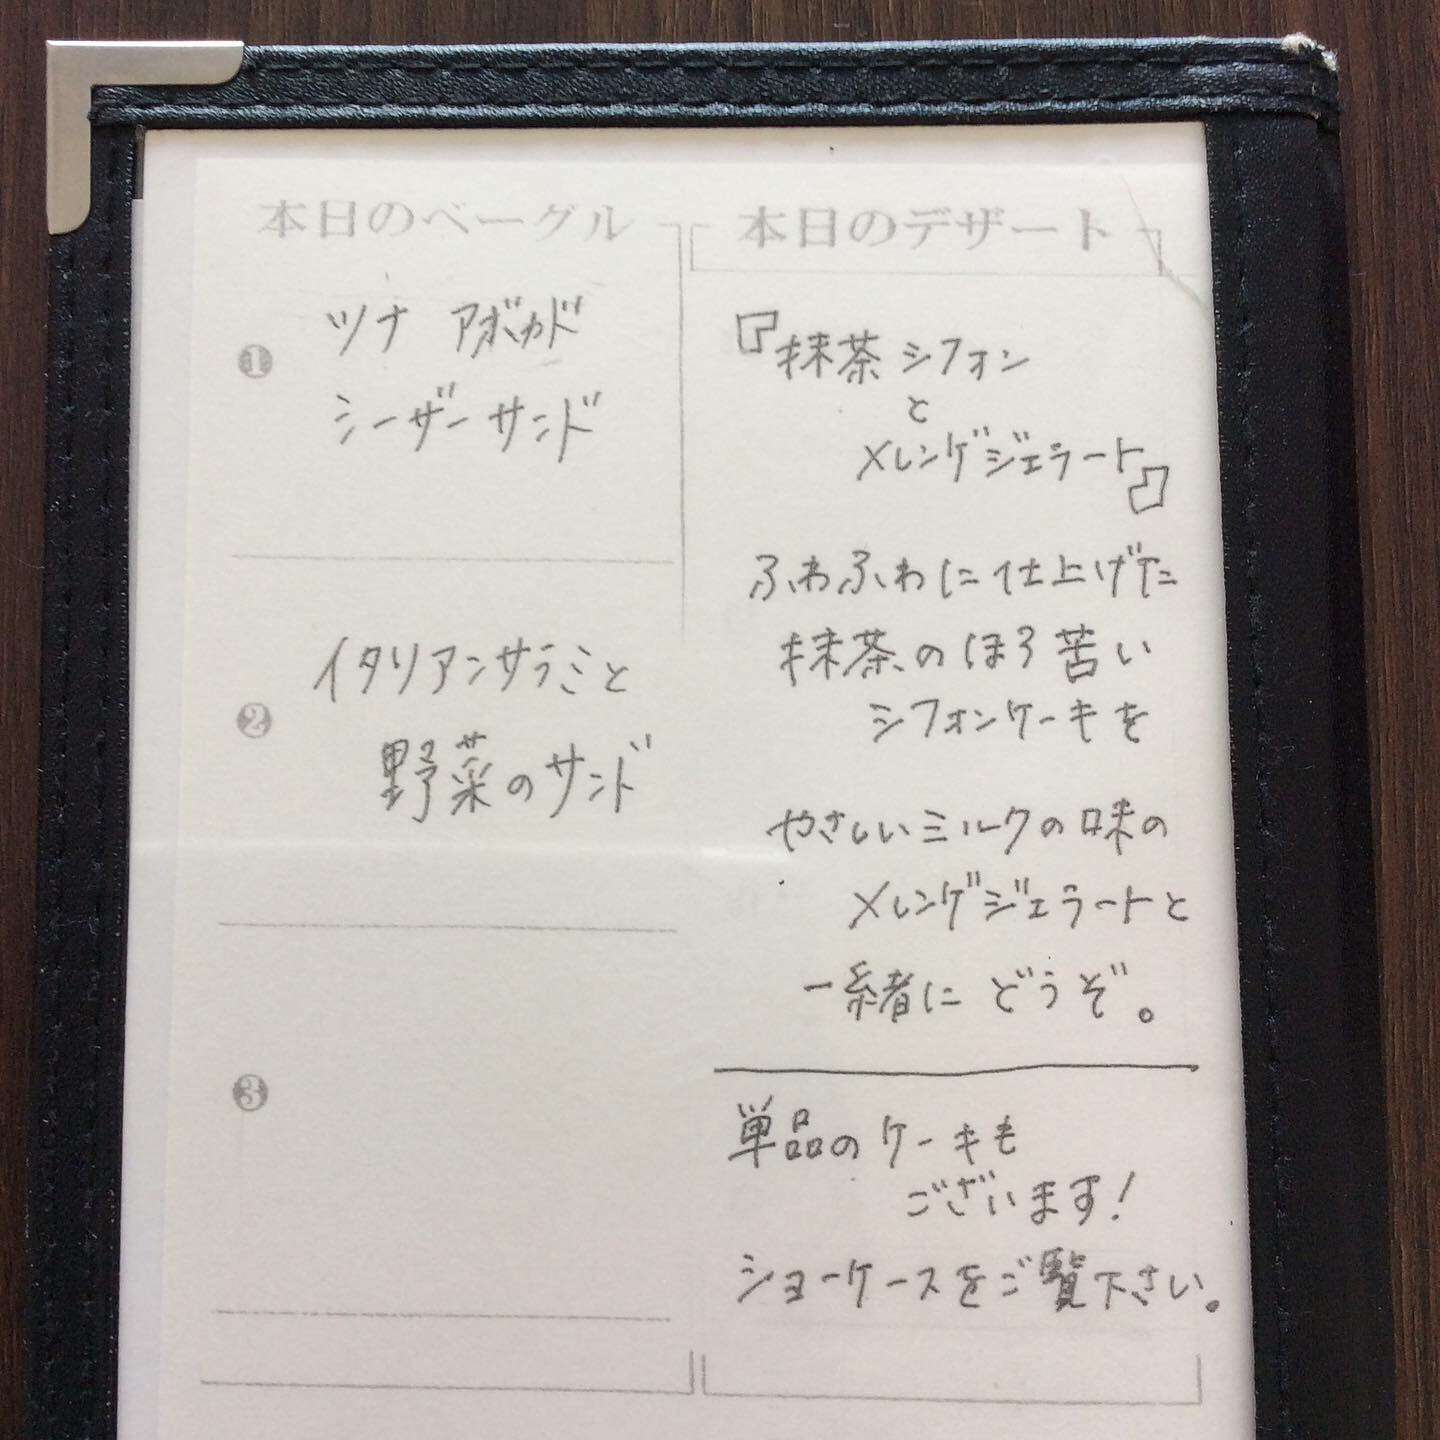 本日のベーグル
❶
ツナ アボカド
シーザーサンド
❷
イタリアンサラミと
野菜のサンド
❸
本日のデザート
『抹茶シフォン
と
メレンゲジェラート』
ふわふわに仕上げた
抹茶のほろ苦い
シフォンケーキを
やさしいミルクの味の
メレンゲジェラートと
一緒に どうぞ。
単品のケーキも
ございます!
ショーケースをご覧下さい。